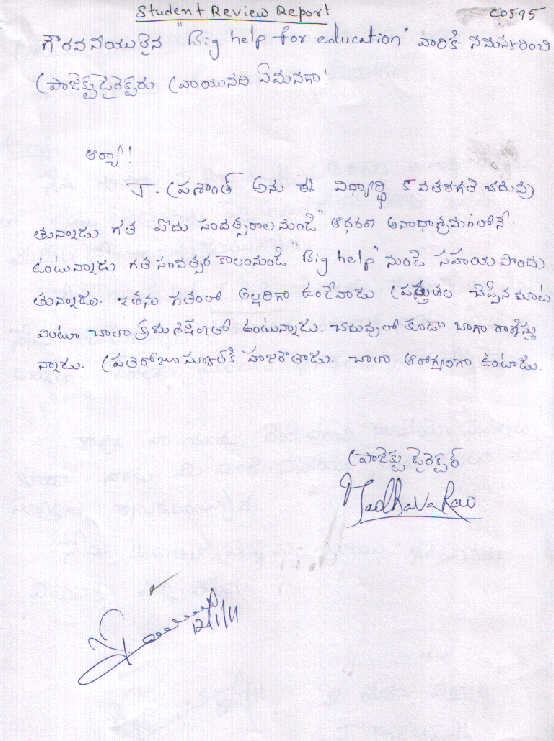 Student Review Report
C0595
గౌరవనీయులైన "Big help for education" వారికి నమస్కరించి
ప్రాజెక్ట్ డైరెక్టరు వ్రాయునది ఏమనగా!
ఆర్యా!
J. ప్రశాంత్ అను ఈ విద్యార్థి 6 వ తరగతి చదువు
తున్నాడు గత ఐదు సంవత్సరాల నుండి ఆదరణ అనాధాశ్రమంలోనే
ఉంటున్నాడు గత సంవత్సర కాలంనుండి "Big help" నుండి సహాయ పొందు
తున్నాడు. ఇతను గతంలో అల్లరిగా ఉండేవాడు ప్రస్తుతం చెప్పిన మాట
వింటూ చాలా క్రమశిక్షణతో ఉంటున్నాడు. చదువులో కూడా బాగా రాణిస్తు
న్నాడు. ప్రతిరోజు స్కూల్‌కి హాజరౌతాడు. చాలా ఆరోగ్యంగా ఉంటాడు.
ప్రాజెక్టు డైరెక్టర్
Madhava Rao
12/1/11